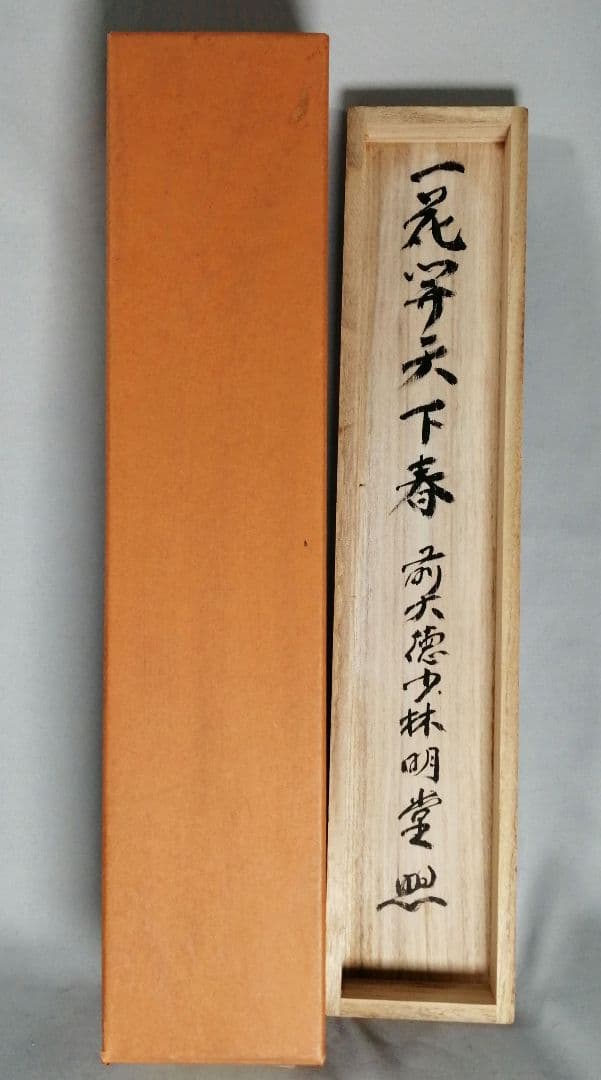 一花開天下春 前大徳少林明堂